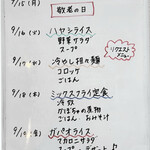 9/15(月)
敬老の日
9/16(火)
ハヤシライス
野菜サラダ
スープ
リクエスト
メニュー
9/17(水)
冷やし担々麺
コロッケ
ごはん
9/18(木)
ミックスフライ定食
冷奴
かぼちゃの煮物
ごはん おみそ汁
9/19(金)
ガパオライス
マカロニサラダ
スープ・デザート